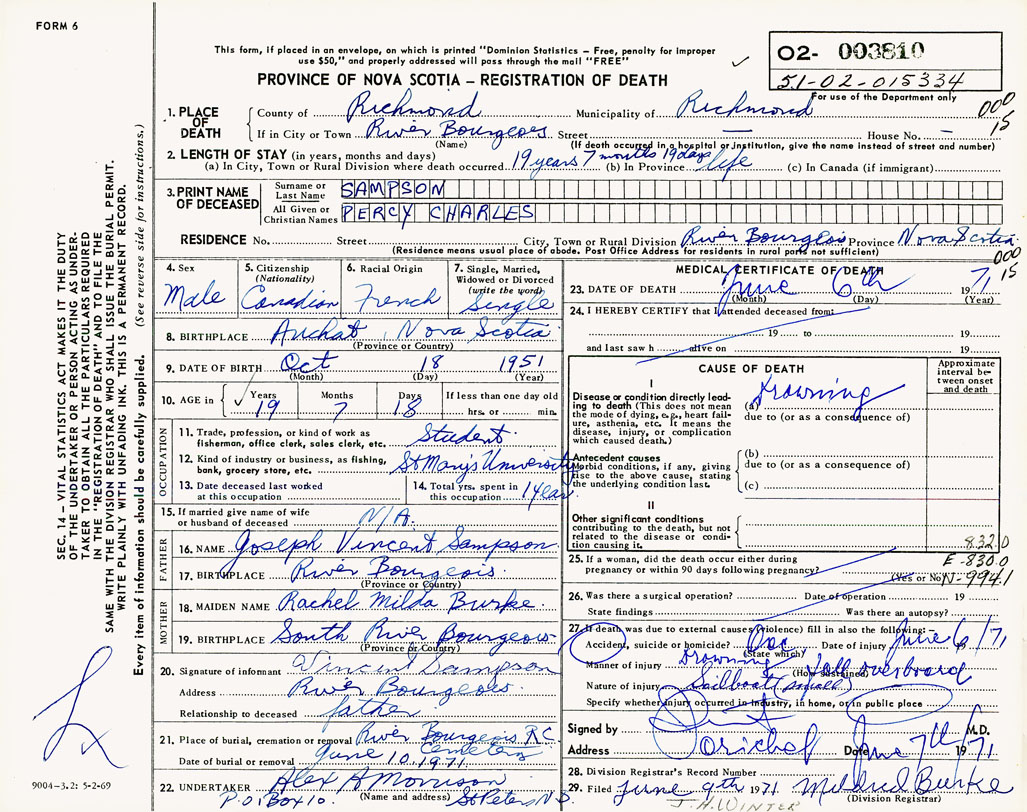 FORM 6
This form, if placed in an envelope, on which is printed "Dominion Statistics – Free, penalty for improper
use $50," and properly addressed will pass through the mail "FREE"
PROVINCE OF NOVA SCOTIA – REGISTRATION OF DEATH
02- 003810
51-02-015334
For use of the Department only
000
15
1. PLACE OF DEATH
County of Richmond Municipality of Richmond
If in City or Town River Bourgeois Street — House No. —
(Name) (If death occurred in a hospital or institution, give the name instead of street and number)
2. LENGTH OF STAY (in years, months and days)
(a) In City, Town or Rural Division where death occurred 19 years 7 months 19 days (b) In Province life (c) In Canada (if immigrant)
3. PRINT NAME OF DECEASED
Surname or Last Name SAMPSON
All Given or Christian Names PERCY CHARLES
RESIDENCE No. Street City, Town or Rural Division River Bourgeois Province Nova Scotia
(Residence means usual place of abode. Post Office Address for residents in rural parts not sufficient)
000
15
4. Sex
Male
5. Citizenship (Nationality)
Canadian
6. Racial Origin
French
7. Single, Married, Widowed or Divorced (write the word)
Single
8. BIRTHPLACE Arichat, Nova Scotia
(Province or Country)
9. DATE OF BIRTH Oct 18 1951
(Month) (Day) (Year)
10. AGE in Years Months Days If less than one day old
19 7 18 hrs. or min.
OCCUPATION
11. Trade, profession, or kind of work as
fisherman, office clerk, sales clerk, etc. Student
12. Kind of industry or business, as fishing,
bank, grocery store, etc. St Mary's University
13. Date deceased last worked
at this occupation
14. Total yrs. spent in
this occupation 1 year
15. If married give name of wife
or husband of deceased N/A.
FATHER
16. NAME Joseph Vincent Sampson
17. BIRTHPLACE River Bourgeois
(Province or Country)
MOTHER
18. MAIDEN NAME Rachel Milda Burke
19. BIRTHPLACE South River Bourgeois
(Province or Country)
20. Signature of informant Vincent Sampson
Address River Bourgeois
Relationship to deceased father
21. Place of burial, cremation or removal River Bourgeois R.C. Cemetery
Date of burial or removal June 10, 1971
22. UNDERTAKER Alex A Morrison
(Name and address)
P.O. Box 10. St Peters N.S.
MEDICAL CERTIFICATE OF DEATH
23. DATE OF DEATH June 6th 1971
(Month) (Day) (Year)
24. I HEREBY CERTIFY that I attended deceased from:
19 to 19
and last saw h alive on 19
CAUSE OF DEATH
Approximate interval between onset and death
I
Disease or condition directly leading to death (This does not mean the mode of dying, e.g., heart failure, asthenia, etc. It means the disease, injury, or complication which caused death.)
(a) Drowning
due to (or as a consequence of)
Antecedent causes
Morbid conditions, if any, giving rise to the above cause, stating the underlying condition last.
(b)
due to (or as a consequence of)
(c)
II
Other significant conditions
contributing to the death, but not related to the disease or condition causing it.
832.0
E-830.0
N-994.1
25. If a woman, did the death occur either during
pregnancy or within 90 days following pregnancy?
(Yes or No)
26. Was there a surgical operation? Date of operation 19
State findings Was there an autopsy?
27. If death was due to external causes (violence) fill in also the following: –
Accident, suicide or homicide? Acc Date of injury June 6/71
(State which)
Manner of injury Drowning fell overboard
(How sustained)
Nature of injury Sailboat (small)
Specify whether injury occurred in industry, in home, or in public place
Signed by M.D.
Address Arichat Date June 7th 1971
28. Division Registrar's Record Number
29. Filed June 9th 1971 Mildred Burke
(Division Registrar)
J.H. WINTER
SEC. 14 – VITAL STATISTICS ACT MAKES IT THE DUTY
OF THE UNDERTAKER OR PERSON ACTING AS UNDER-
TAKER TO OBTAIN ALL THE PARTICULARS REQUIRED
IN THE "REGISTRATION OF DEATH" AND TO FILE THE
SAME WITH THE DIVISION REGISTRAR WHO SHALL ISSUE THE BURIAL PERMIT.
WRITE PLAINLY WITH UNFADING INK. THIS IS A PERMANENT RECORD.
Every item of information should be carefully supplied. (See reverse side for instructions.)
9004–3.2: 5-2-69